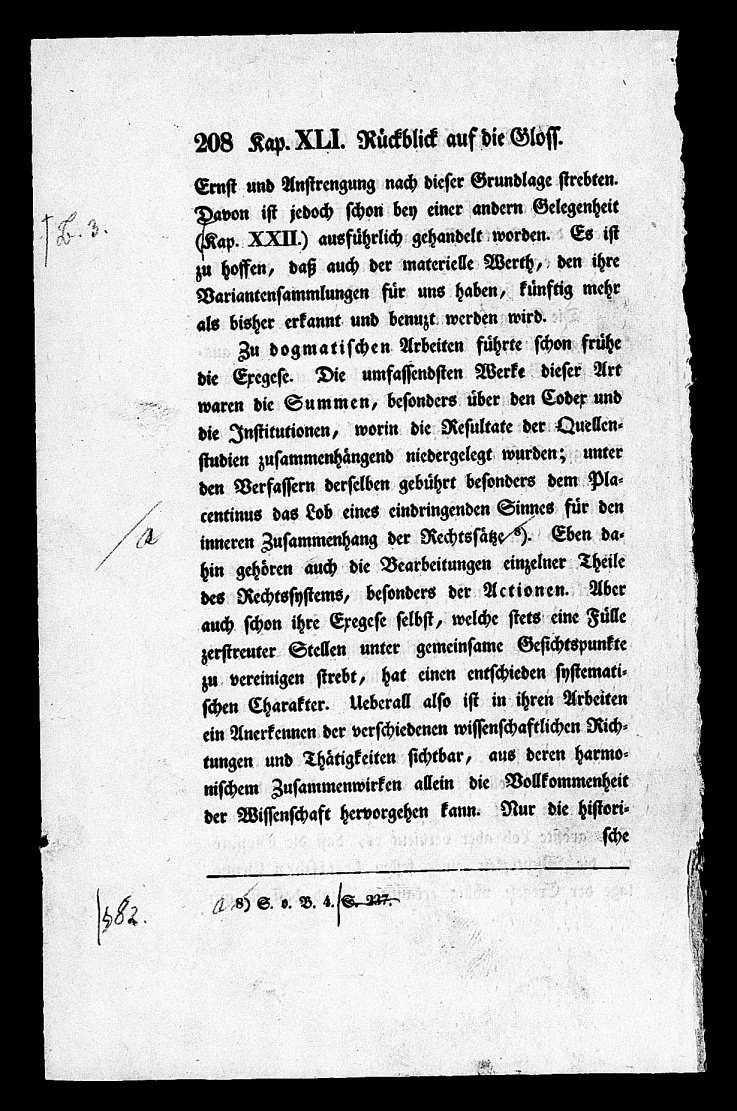 208 Kap. XLI. Rückblick auf die Gloss.
Ernst und Anstrengung nach dieser Grundlage strebten.
Davon ist jedoch schon bey einer andern Gelegenheit
B. 3.
(Kap. XXII.) ausführlich gehandelt worden. Es ist
zu hoffen, daß auch der materielle Werth, den ihre
Variantensammlungen für uns haben, künftig mehr
als bisher erkannt und benuzt werden wird.
Zu dogmatischen Arbeiten führte schon frühe
die Exegese. Die umfassendsten Werke dieser Art
waren die Summen, besonders über den Codex und
die Institutionen, worin die Resultate der Quellen-
studien zusammenhängend niedergelegt wurden; unter
den Verfassern derselben gebührt besonders dem Pla-
centinus das Lob eines eindringenden Sinnes für den
a
inneren Zusammenhang der Rechtssätze 8). Eben da-
hin gehören auch die Bearbeitungen einzelner Theile
des Rechtssystems, besonders der Actionen. Aber
auch schon ihre Exegese selbst, welche stets eine Fülle
zerstreuter Stellen unter gemeinsame Gesichtspunkte
zu vereinigen strebt, hat einen entschieden systemati-
schen Charakter. Ueberall also ist in ihren Arbeiten
ein Anerkennen der verschiedenen wissenschaftlichen Rich-
tungen und Thätigkeiten sichtbar, aus deren harmo-
nischem Zusammenwirken allein die Vollkommenheit
der Wissenschaft hervorgehen kann. Nur die histori-
sche
a 8) S. o. B. 4. S. 237.
§82.